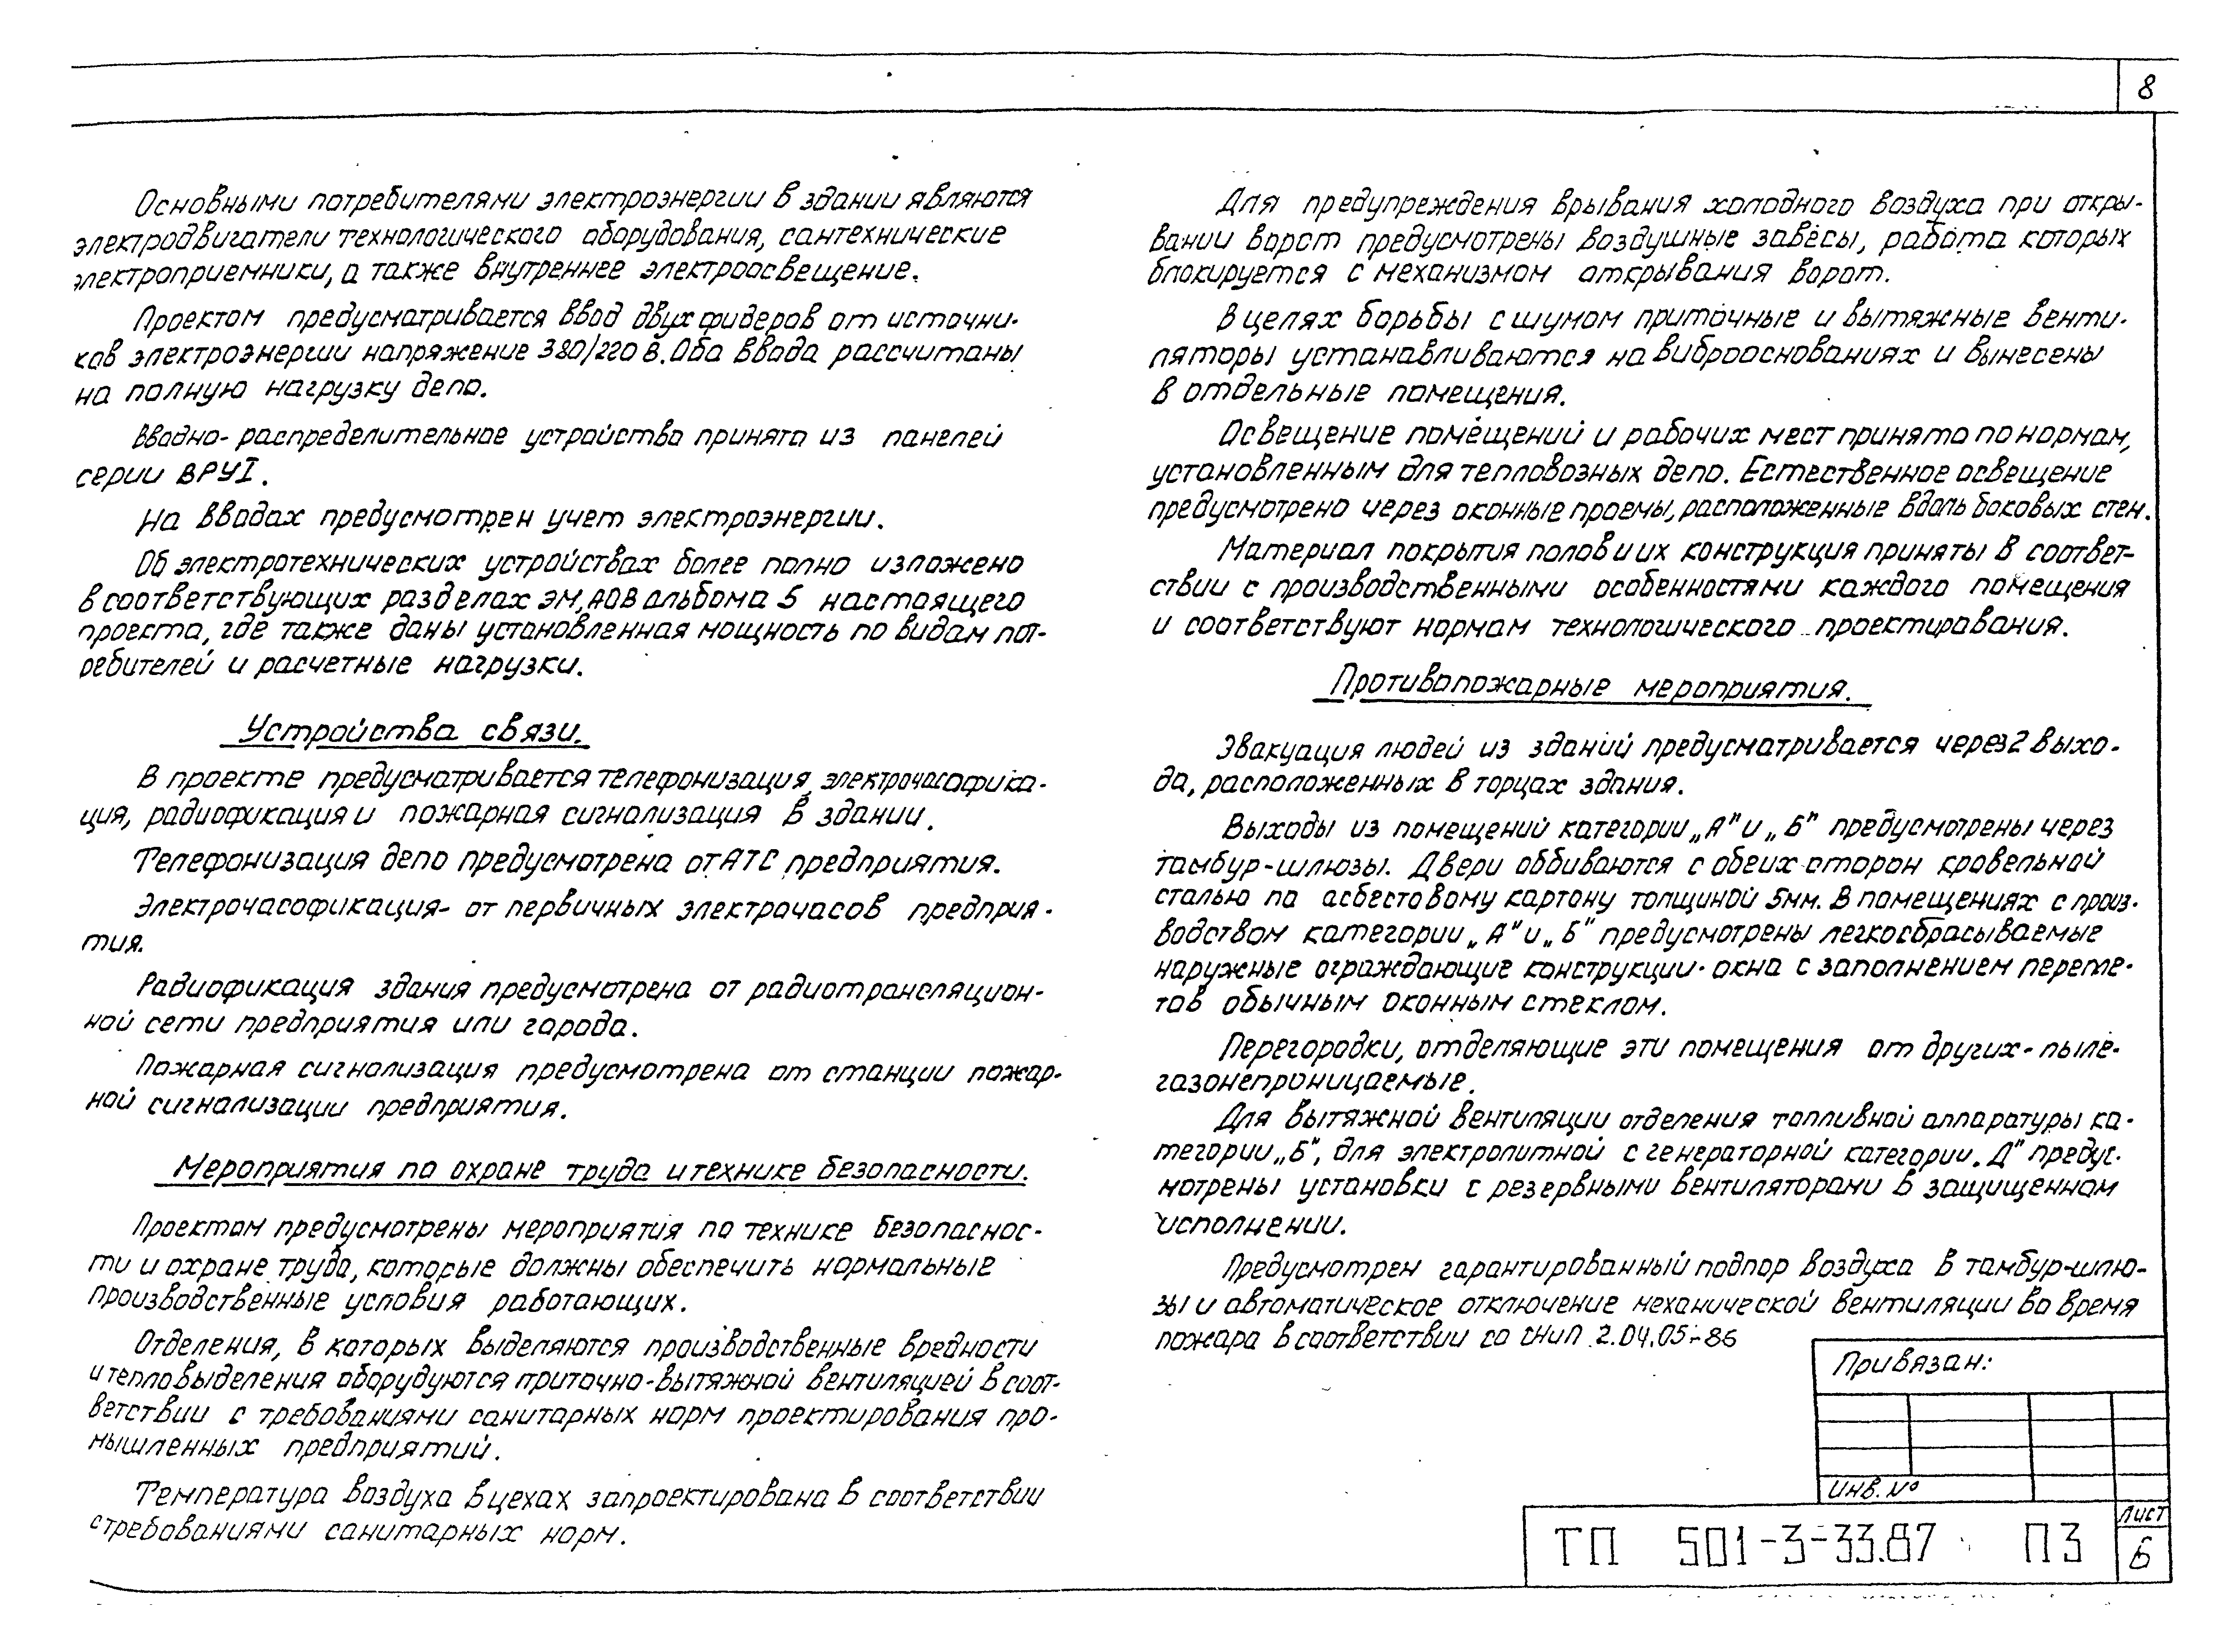 8
Основными потребителями электроэнергии в здании являются
электродвигатели технологического оборудования, сантехнические
электроприемники, а также внутреннее электроосвещение.
Проектом предусматривается ввод двух фидеров от источни-
ков электроэнергии напряжение 380/220 в. Оба ввода рассчитаны
на полную нагрузку депо.
Вводно-распределительное устройство принято из панелей
серии ВРУI.
На вводах предусмотрен учет электроэнергии.
Об электротехнических устройствах более полно изложено
в соответствующих разделах ЭМ, АОВ альбома 5 настоящего
проекта, где также даны установленная мощность по видам пот-
ребителей и расчетные нагрузки.
Устройства связи.
В проекте предусматривается телефонизация, электрочасофика-
ция, радиофикация и пожарная сигнализация в здании.
Телефонизация депо предусмотрена от АТС предприятия.
Электрочасофикация- от первичных электрочасов предприя-
тия.
Радиофикация здания предусмотрена от радиотрансляцион-
ной сети предприятия или города.
Пожарная сигнализация предусмотрена от станции пожар-
ной сигнализации предприятия.
Мероприятия по охране труда и технике безопасности.
Проектом предусмотрены мероприятия по технике безопаснос-
ти и охране труда, которые должны обеспечить нормальные
производственные условия работающих.
Отделения, в которых выделяются производственные вредности
и тепловыделения оборудуются приточно-вытяжной вентиляцией в соот-
ветствии с требованиями санитарных норм проектирования про-
мышленных предприятий.
Температура воздуха в цехах запроектирована в соответствии
с требованиями санитарных норм.
Для предупреждения врывания холодного воздуха при откры-
вании ворот предусмотрены воздушные завесы, работа которых
блокируется с механизмом открывания ворот.
В целях борьбы с шумом приточные и вытяжные венти-
ляторы устанавливаются на виброоснованиях и вынесены
в отдельные помещения.
Освещение помещений и рабочих мест принято по нормам,
установленным для тепловозных депо. Естественное освещение
предусмотрено через оконные проемы, расположенные вдоль боковых стен.
Материал покрытия полов и их конструкция приняты в соответ-
ствии с производственными особенностями каждого помещения
и соответствуют нормам технологического проектирования.
Противопожарные мероприятия.
Эвакуация людей из зданий предусматривается через 2 выхо-
да, расположенных в торцах здания.
Выходы из помещений категории „А" и „Б" предусмотрены через
тамбур-шлюзы. Двери оббиваются с обеих сторон кровельной
сталью по асбестовому картону толщиной 5мм. В помещениях с произ-
водством категории „А" и „Б" предусмотрены легкосбрасываемые
наружные ограждающие конструкции- окна с заполнением перепле-
тов обычным оконным стеклом.
Перегородки, отделяющие эти помещения от других- пыле-
газонепроницаемые.
Для вытяжной вентиляции отделения топливной аппаратуры ка-
тегории „Б", для электролитной с генераторной категории „Д" предус-
мотрены установки с резервными вентиляторами в защищенном
исполнении.
Предусмотрен гарантированный подпор воздуха в тамбур-шлю-
зы и автоматическое отключение механической вентиляции во время
пожара в соответствии со СНиП 2.04.05-86
Привязан:
Инв. №
ТП 501-3-33.87 ПЗ
Лист
6